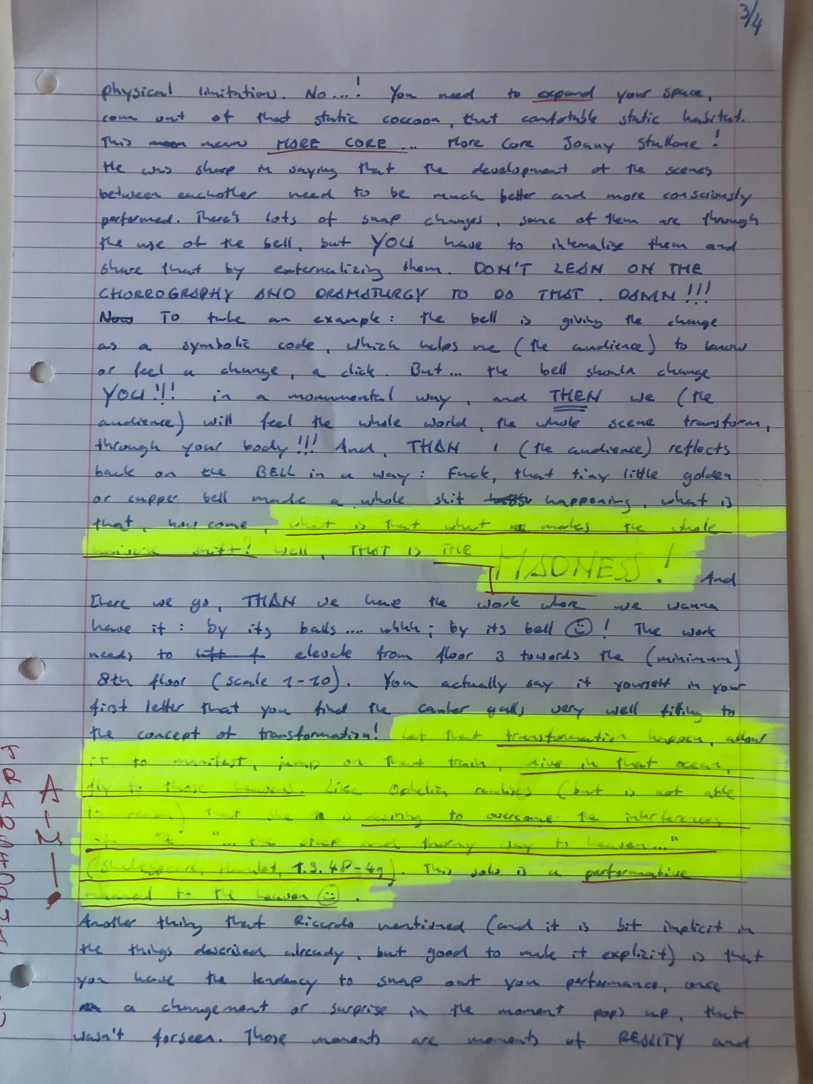 3/4
physical limitation. No...! You need to expand your space,
com out of that static coccoon, that comfortable static habitat.
This mean means MORE CORE... More Core Joany Stallone!
He was sharp in saying that the development of the scenes
between eachother need to be much better and more consciously
performed. There's lots of snap changes, some of them are through
the use of the bell, but YOU have to internalise them and
share that by externalizing them. DON'T LEAN ON THE
CHOREOGRAPHY AND DRAMATURGY TO DO THAT. DAMN!!!
Now TO take an example: the bell is giving the change
as a symbolic code, which helps me (the audience) to know
or feel a change, a click. But... the bell should change
YOU!!! in a monumental way, and THEN we (the
audience) will feel the whole world, the whole scene transform,
through your body!!! And, THAN I (the audience) reflects
back on the BELL in a way: Fuck, that tiny little golden
or cupper bell made a whole shit happening, what is
that, how come, what is that what makes the whole
universe shift? Well, THAT IS THE
MADNESS! And
there we go, THAN we have the work where we wanna
have it: by its balls.... uhhh; by its bell ☺! The work
needs to elevate from floor 3 towards the (minimum)
8th floor (scale 1-10). You actually say it yourself in your
first letter that you find the canker galls very well fitting to
the concept of transformation! Let that transformation happen, allow
it to manifest, jump on that train, dive in that ocean,
fly to those heavens. Like Ophelia realises (but is not able
to reason) that she is desiring to overcome the interferences
of "... the steep and thorny way to heaven..."
(Shakespeare, Hamlet, 1.3. 48-49). This solo is a performative
manual to the heaven ☺.
Another thing that Ricardo mentioned (and it is bit implicit in
the things described already, but good to make it explicit) is that
you have the tendency to snap out you performance, once
a changement or surprise in the moment pops up, that
wasn't forseen. Those moments are moments of REALITY and